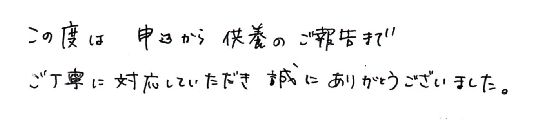 この度は 申込から 供養の ご報告まで
ご丁寧に 対応していただき 誠に ありがとうございました。